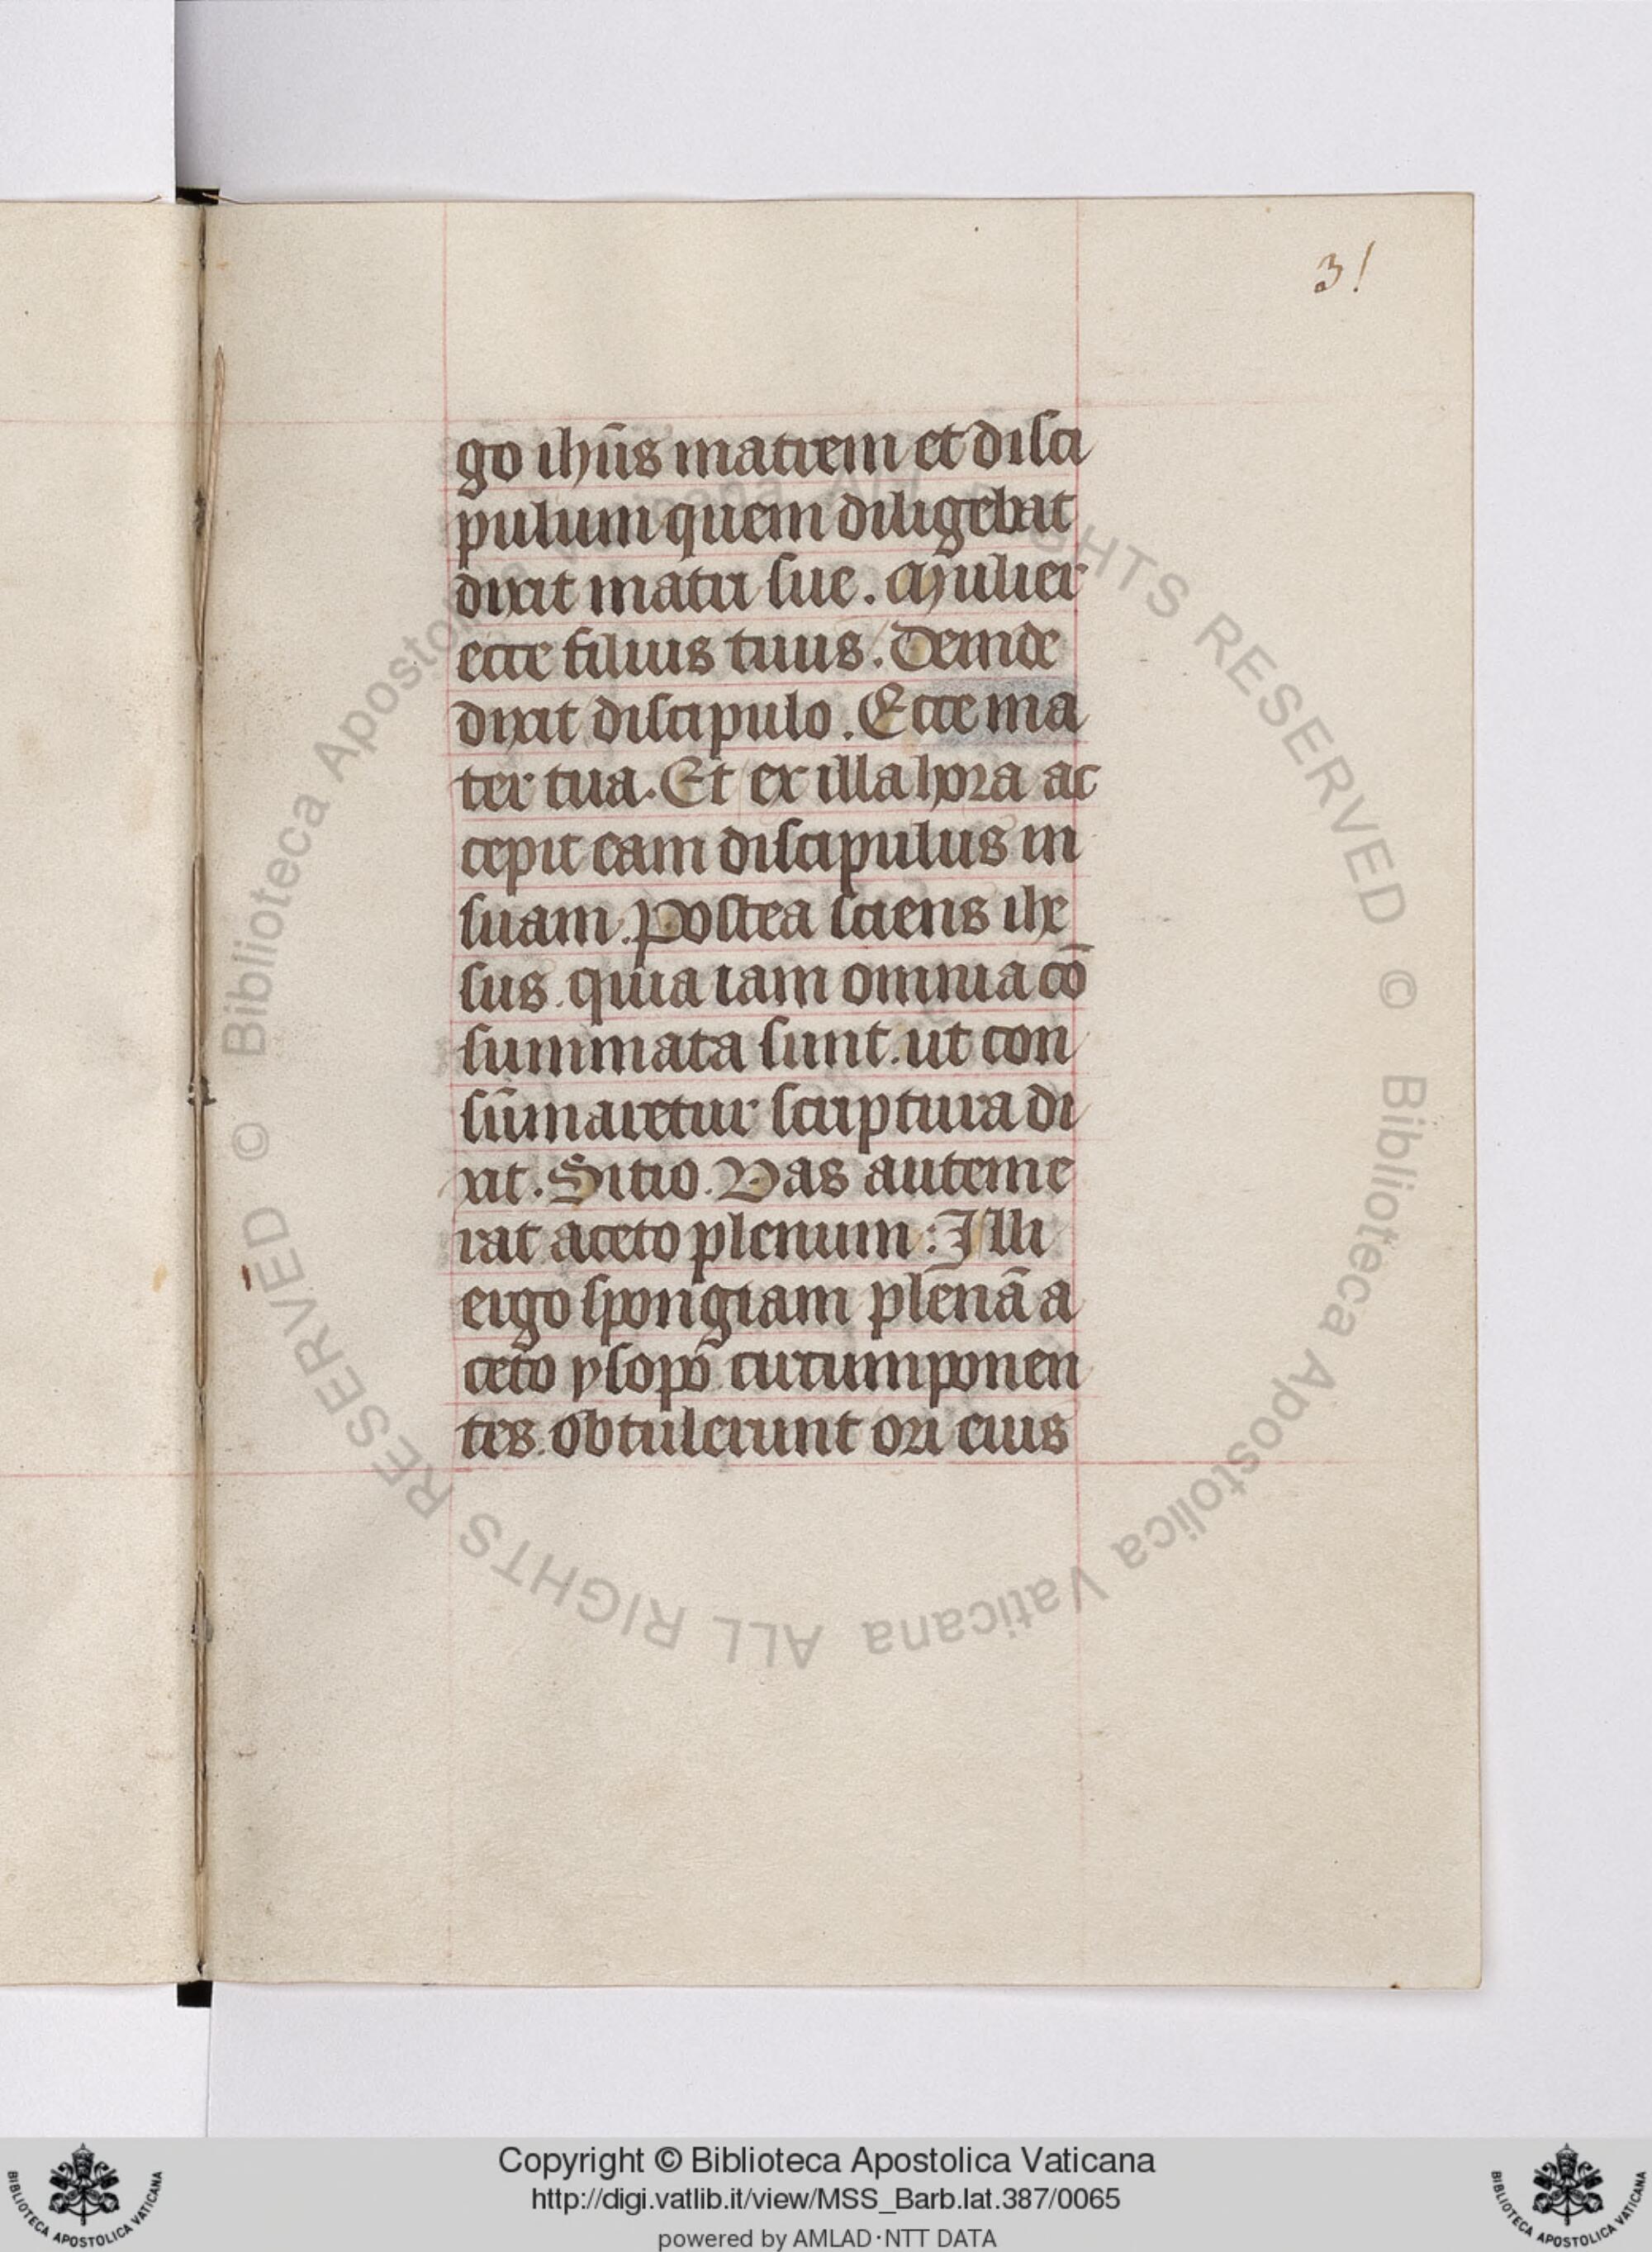 31
go ihūs matrem et disci
pulum quem diligebat
dixit matri sue. Mulier
ecce filius tuus. Deinde
dixit discipulo. Ecce ma
ter tua. Et ex illa hora ac
cepit eam discipulus in
suam. Postea sciens ihe
sus. quia iam omnia cō
summata sunt. ut con
sūmaretur scriptura di
xit. Sitio. Vas autem e
rat aceto plenum: Illi
ergo spongiam plenā a
ceto ysopo circumponen
tes. obtulerunt ori eius
© Biblioteca Apostolica Vaticana ALL RIGHTS RESERVED
© Biblioteca Apostolica Vaticana ALL RIGHTS RESERVED
Copyright © Biblioteca Apostolica Vaticana
http://digi.vatlib.it/view/MSS_Barb.lat.387/0065
powered by AMLAD·NTT DATA
BIBLIOTECA APOSTOLICA VATICANA
BIBLIOTECA APOSTOLICA VATICANA